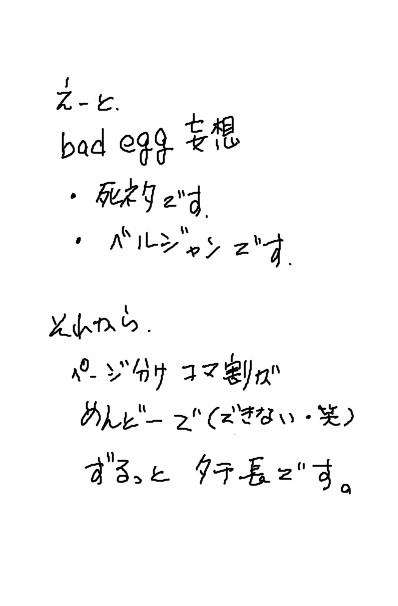 えーと.
bad egg 妄想
・死ネタです.
・ベルジャンです.
それから.
ページ分け コマ割が
めんどーで(できない・笑)
ずるっと タテ長です。